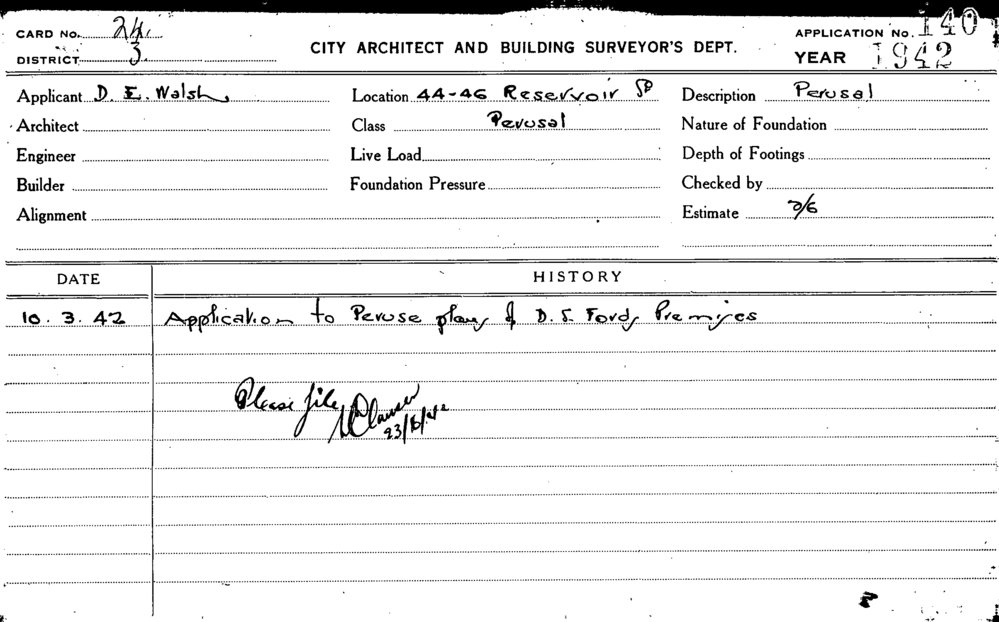 CARD No. 24.
DISTRICT 3.
CITY ARCHITECT AND BUILDING SURVEYOR'S DEPT.
APPLICATION No. 140
YEAR 1942
Applicant D. E. Walsh
Location 44-46 Reservoir St
Description Perusal
Architect
Class Perusal
Nature of Foundation
Engineer
Live Load
Depth of Footings
Builder
Foundation Pressure
Checked by
Alignment
Estimate 2/6
DATE
HISTORY
10. 3. 42 Application to Peruse plans of D. S. Fords Premises
Please file